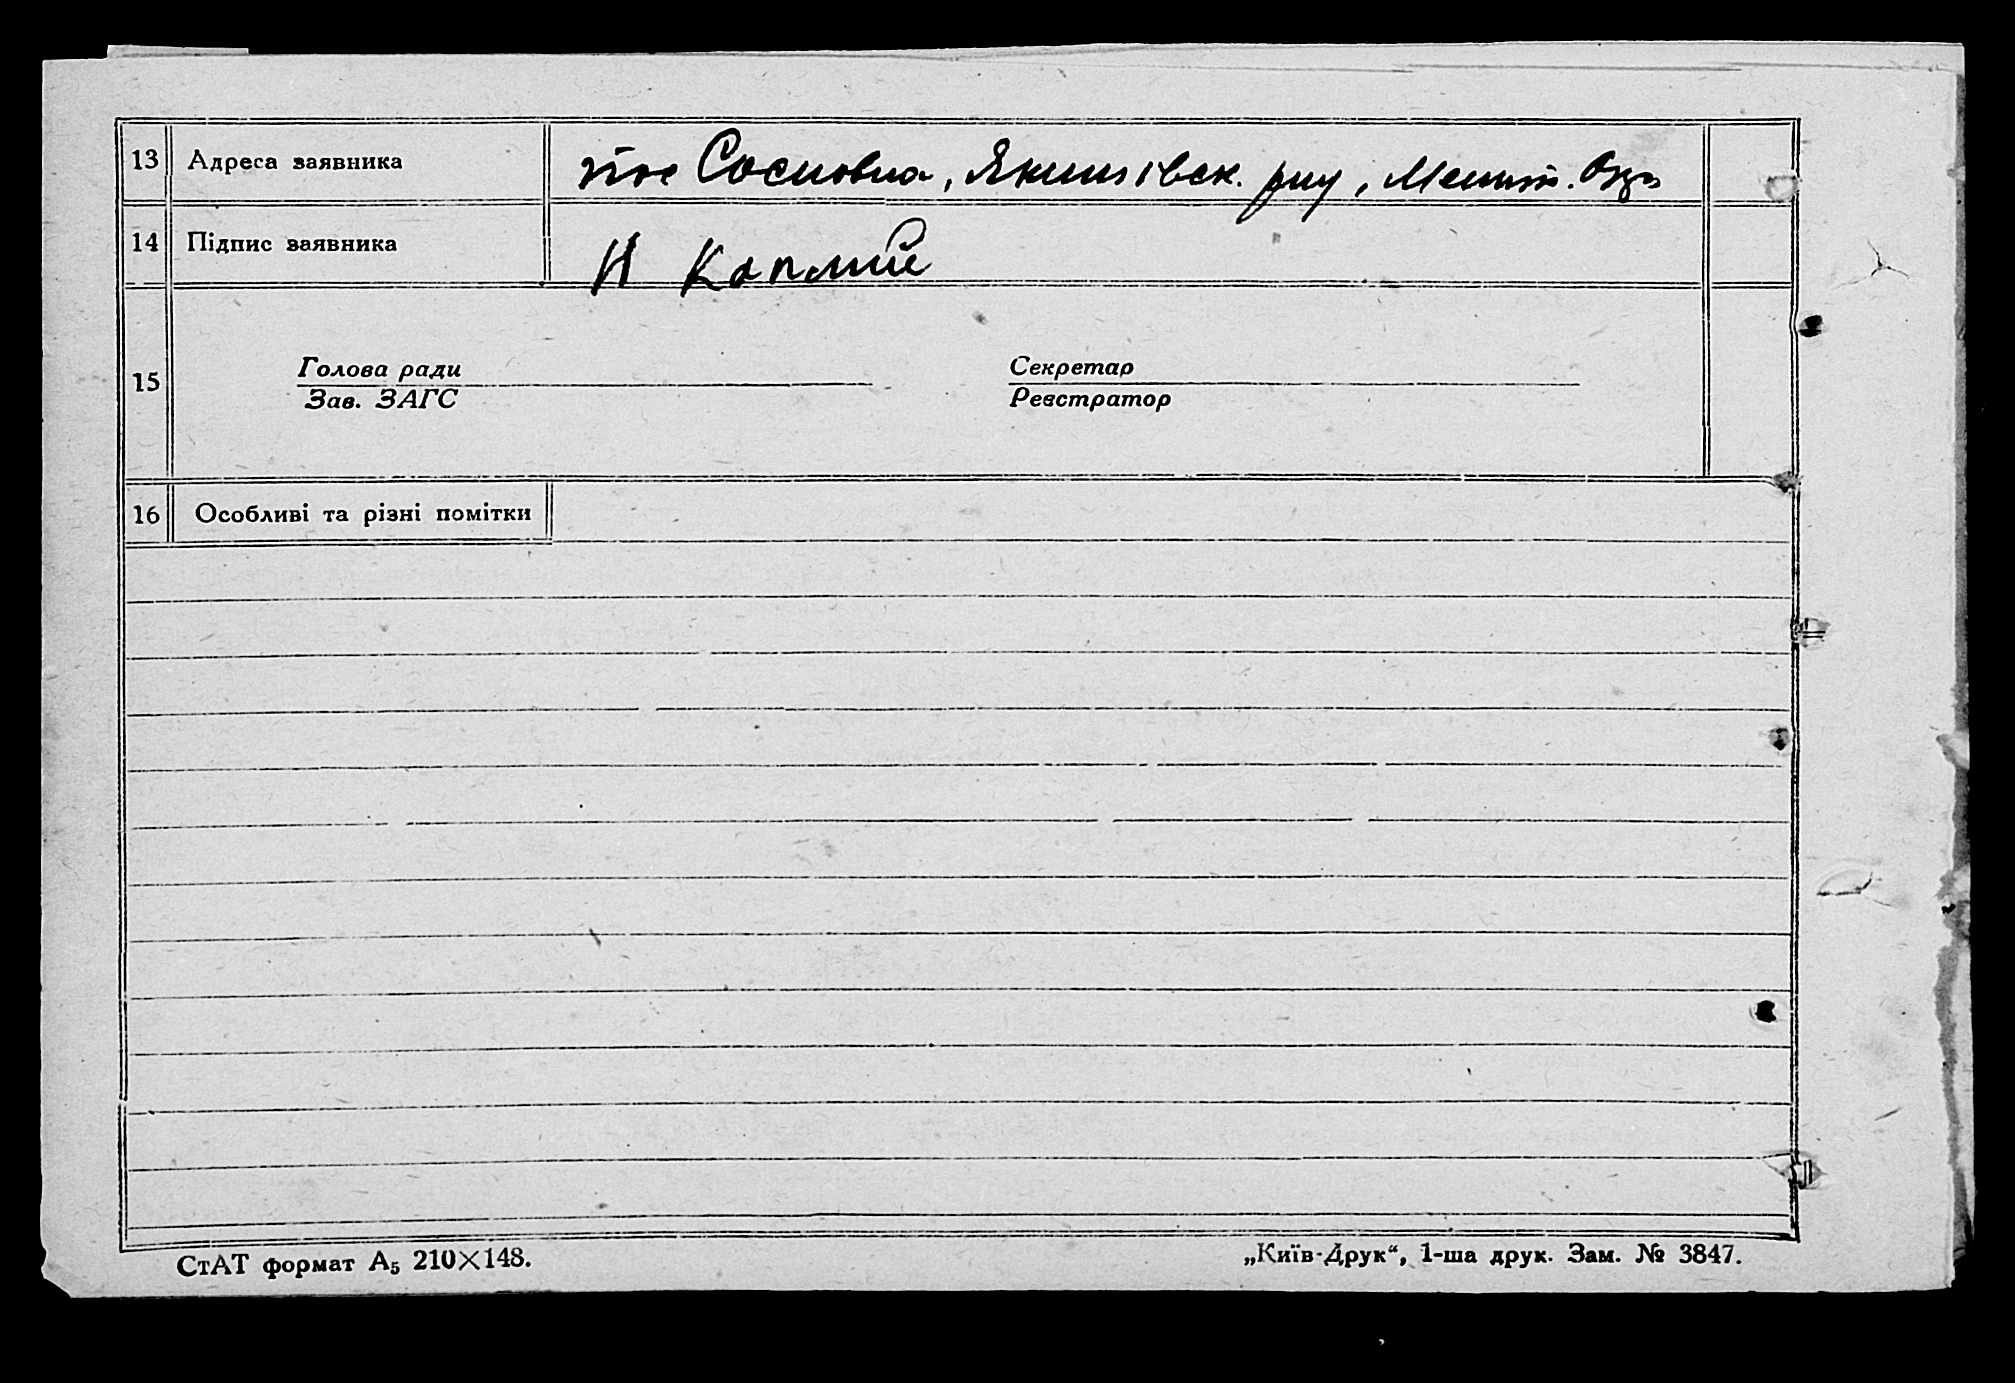 13 Адреса заявника пос Сосновка, Якимівськ. р-ну, Мелит. Окр.
14 Підпис заявника Н Каплий
15 Голова ради Секретар
Зав. ЗАГС Реєстратор
16 Особливі та різні помітки
СтАТ формат А5 210×148. „Київ-Друк“, 1-ша друк. Зам. № 3847.